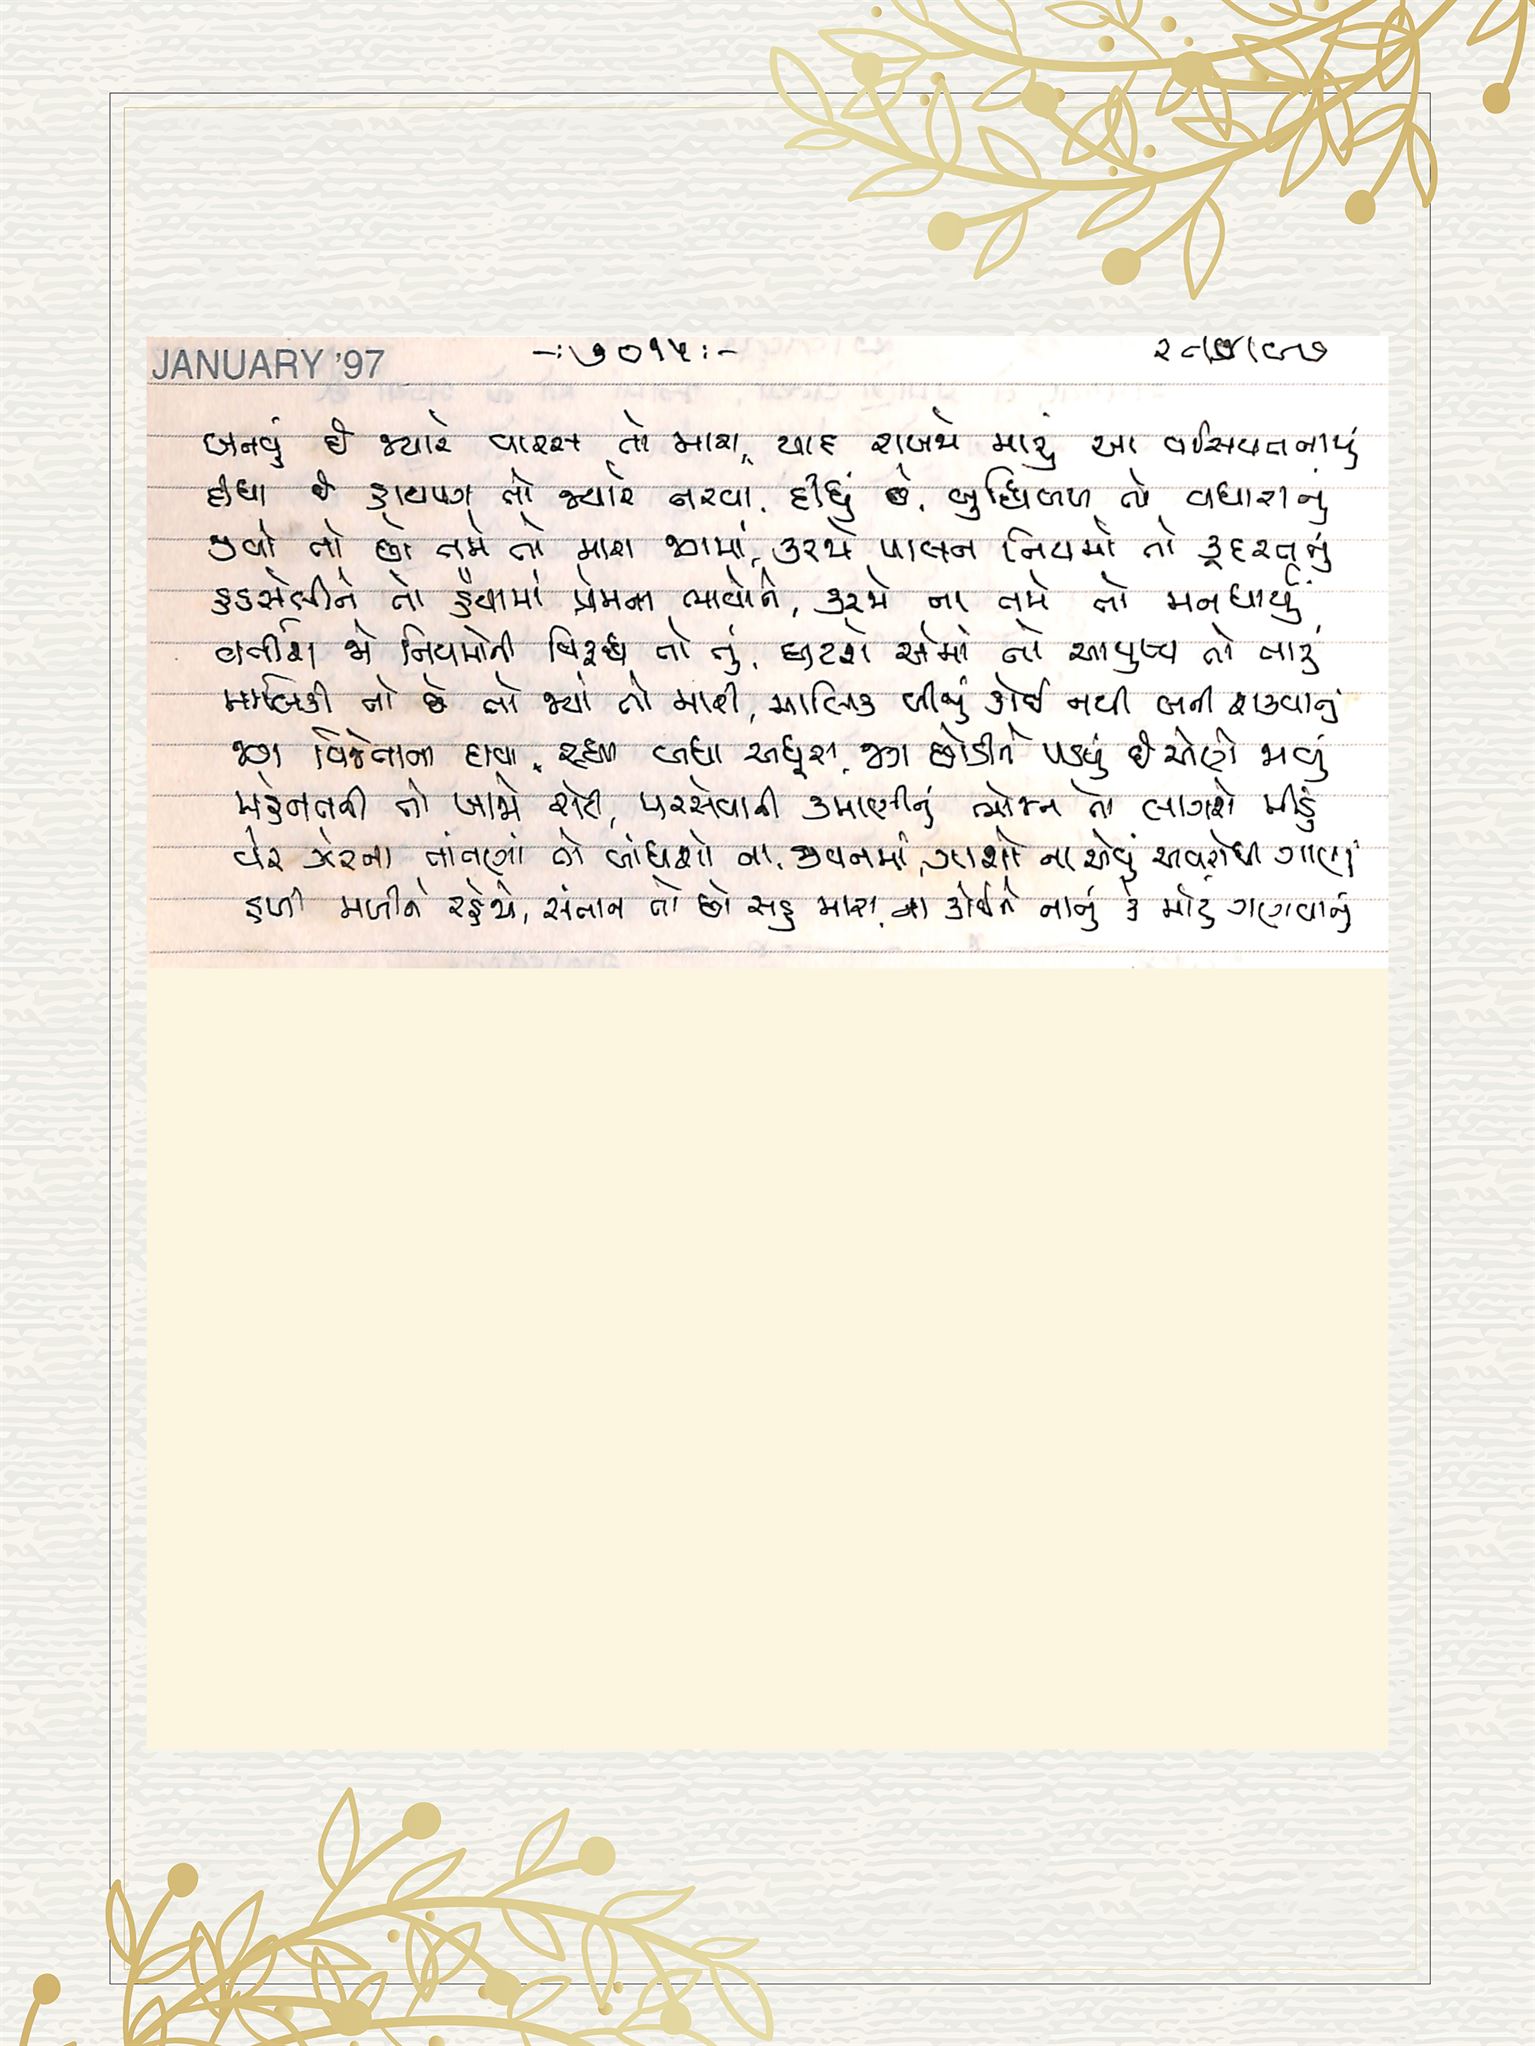 JANUARY '97
-:૭૦૧૫:-
બનવું છે જ્યારે વારસ તો મારા, યાદ રાખજે મારું આ વસિયતનામું
દીધા છે હાથપગ તો જ્યારે નરવા, દીધું છે, બુદ્ધિબળ તો વધારાનું
જીવો તો છો તમે તો મારા જગમાં, કરજો પાલન નિયમો તો કુદરતનું
હડસેલીને તો હૈયામાં પ્રેમના ભાવોને, કરજો ના તમે તો મનધાર્યું
વર્તીશ જો નિયમોની વિરૂધ્ધ તો તું, ઘટશે એમાં તો આયુષ્ય તો તારું
માલિકી તો છે તો જ્યાં તો મારી, માલિક બીજું કોઈ નથી બની શકવાનું
જગ વિજેતાના દાવા, રહ્યા બધા અધૂરા, જગ છોડીને પડયું છે એણે જાવું
મહેનતની તો ખાજો રોટી, પરસેવાની કમાણીનું ભોજન તો લાગશે મીઠું
વેર ઝેરના તાંતણાં તો બાંધશો ના જીવનમાં, ગાશો ના એવું અવરોધી ગાણું
હળી મળીને રહેજો, સંતાન તો છો સહુ મારા, ના કોઈને નાનું કે મોટું ગણવાનું